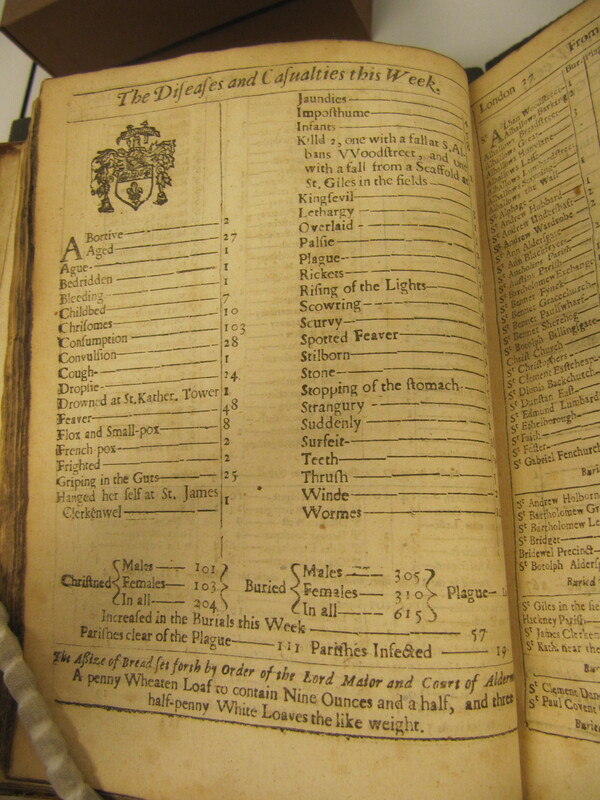 The Diſeaſes and Caſualties this Week.
ABortive 2
Aged 27
Ague 1
Bedridden 1
Bleeding 1
Childbed 7
Chriſomes 10
Conſumption 103
Convulſion 28
Cough 1
Dropſie 24
Drowned at St. Kather. Tower 1
Feaver 48
Flox and Small-pox 8
French pox 2
Frighted 2
Griping in the Guts 25
Hanged her ſelf at St. James
Clerkenwel 1
Jaundies
Impoſthume
Infants
Killd 2, one with a fall at S. Al
bans VVoodſtreet, and one
with a fall from a Scaffold at
St. Giles in the fields
Kingſevil
Lethargy
Overlaid
Palſie
Plague
Rickets
Riſing of the Lights
Scowring
Scurvy
Spotted Feaver
Stilborn
Stone
Stopping of the ſtomach
Strangury
Suddenly
Surfeit
Teeth
Thruſh
Winde
Wormes
Chriſtned
Males 101
Females 103
In all 204
Buried
Males 305
Females 310
In all 615
Plague
Increaſed in the Burials this Week 57
Pariſhes clear of the Plague 111 Pariſhes Infected 19
The Aſsize of Bread ſet forth by Order of the Lord Maior and Court of Alderm
A penny Wheaten Loaf to contain Nine Ounces and a half, and three
half-penny White Loaves the like weight.
London From
St Alphage
St Andrew Hubbard
St Andrew Underſhaft
St Andrew Wardrobe
St Bennet Gracechurch
St Botolph Billingſgate
Chriſt Church
St Chriſtophers
St Clement Eaſtcheap
St Dionis Backchurch
St Dunſtan Eaſt
St Edmund Lumbard
St Ethelborough
St Faith
St Foſter
St Gabriel Fenchurch
St Andrew Holborn
St Bartholomew Gr
St Bartholomew Le
St Bridget
Bridewel Precinct
St Botolph Alderſ
Buried
St Giles in the fie
Hackney Pariſh
St James Clerken
St Kath. near the
St Clement Dan
St Paul Covent